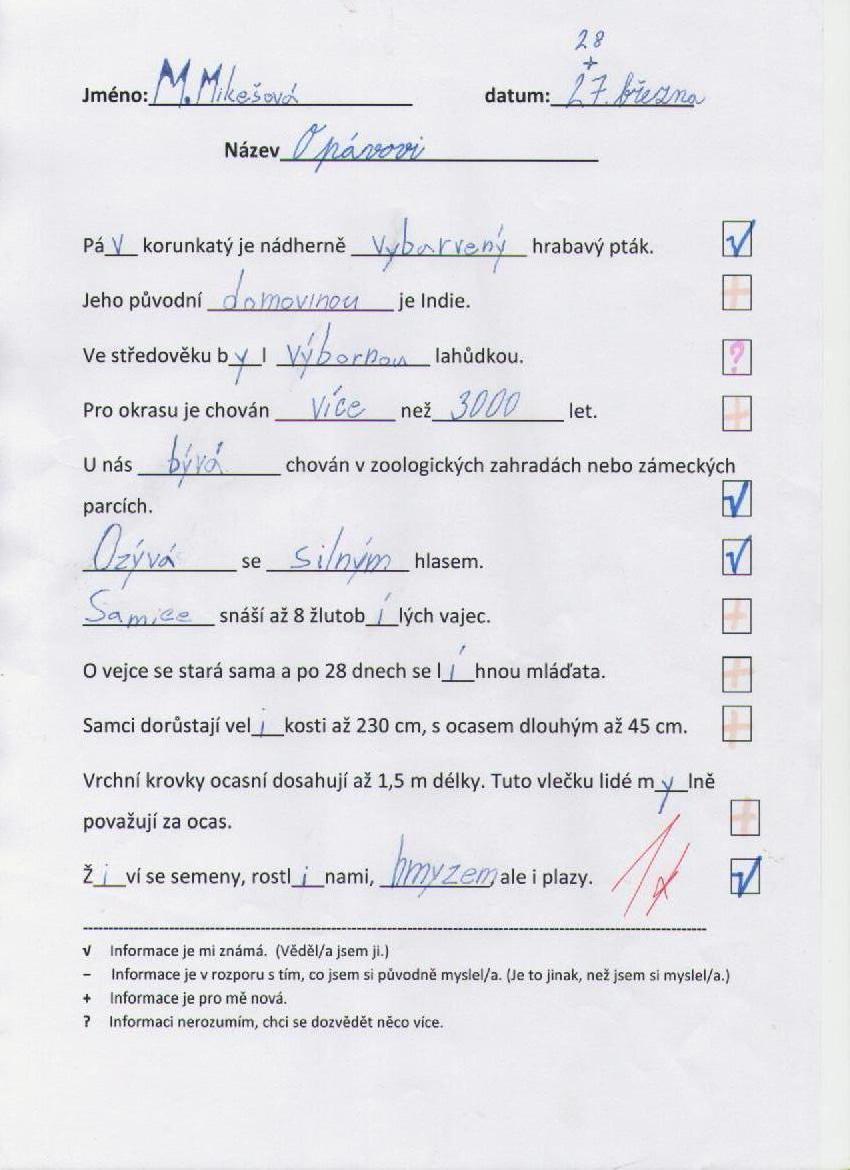 28
+
Jméno: M. Mikešová datum: 27. března
Název O pávovi
Pá v korunkatý je nádherně vybarvený hrabavý pták. √
Jeho původní domovinou je Indie. +
Ve středověku b y l výbornou lahůdkou. ?
Pro okrasu je chován více než 3000 let. +
U nás bývá chován v zoologických zahradách nebo zámeckých
parcích. √
Ozývá se silným hlasem. √
Samice snáší až 8 žlutob í lých vajec. +
O vejce se stará sama a po 28 dnech se l í hnou mláďata. +
Samci dorůstají vel i kosti až 230 cm, s ocasem dlouhým až 45 cm. +
Vrchní krovky ocasní dosahují až 1,5 m délky. Tuto vlečku lidé m y lně
považují za ocas. +
Ž i ví se semeny, rostl i nami, hmyzem, ale i plazy. 1* √
√ Informace je mi známá. (Věděl/a jsem ji.)
– Informace je v rozporu s tím, co jsem si původně myslel/a. (Je to jinak, než jsem si myslel/a.)
+ Informace je pro mě nová.
? Informaci nerozumím, chci se dozvědět něco více.